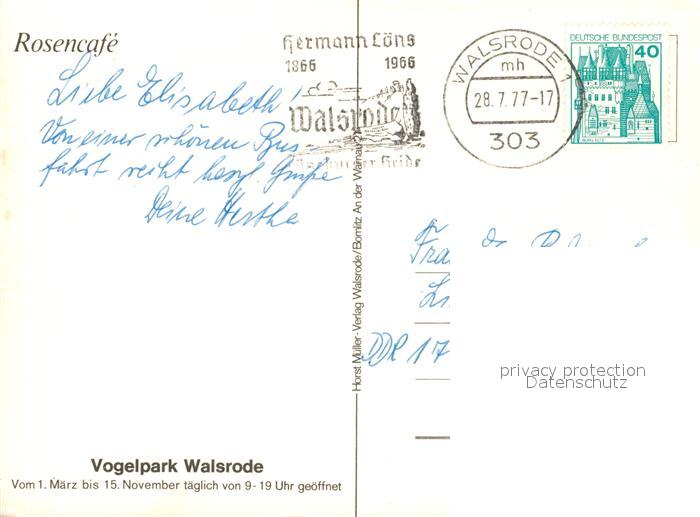 Rosencafé
Hermann Löns
1866 1966
Walsrode
Lüneburger Heide
WALSRODE 1
mh
28.7.77-17
303
DEUTSCHE BUNDESPOST
40
BURG ELTZ
Liebe Elisabeth!
Von einer schönen Bus-
fahrt recht herzl. Grüße
Deine Hertha
Horst Müller-Verlag Walsrode/Bomlitz An der Warnau
DDR 17
privacy protection
Datenschutz
Vogelpark Walsrode
Vom 1. März bis 15. November täglich von 9-19 Uhr geöffnet